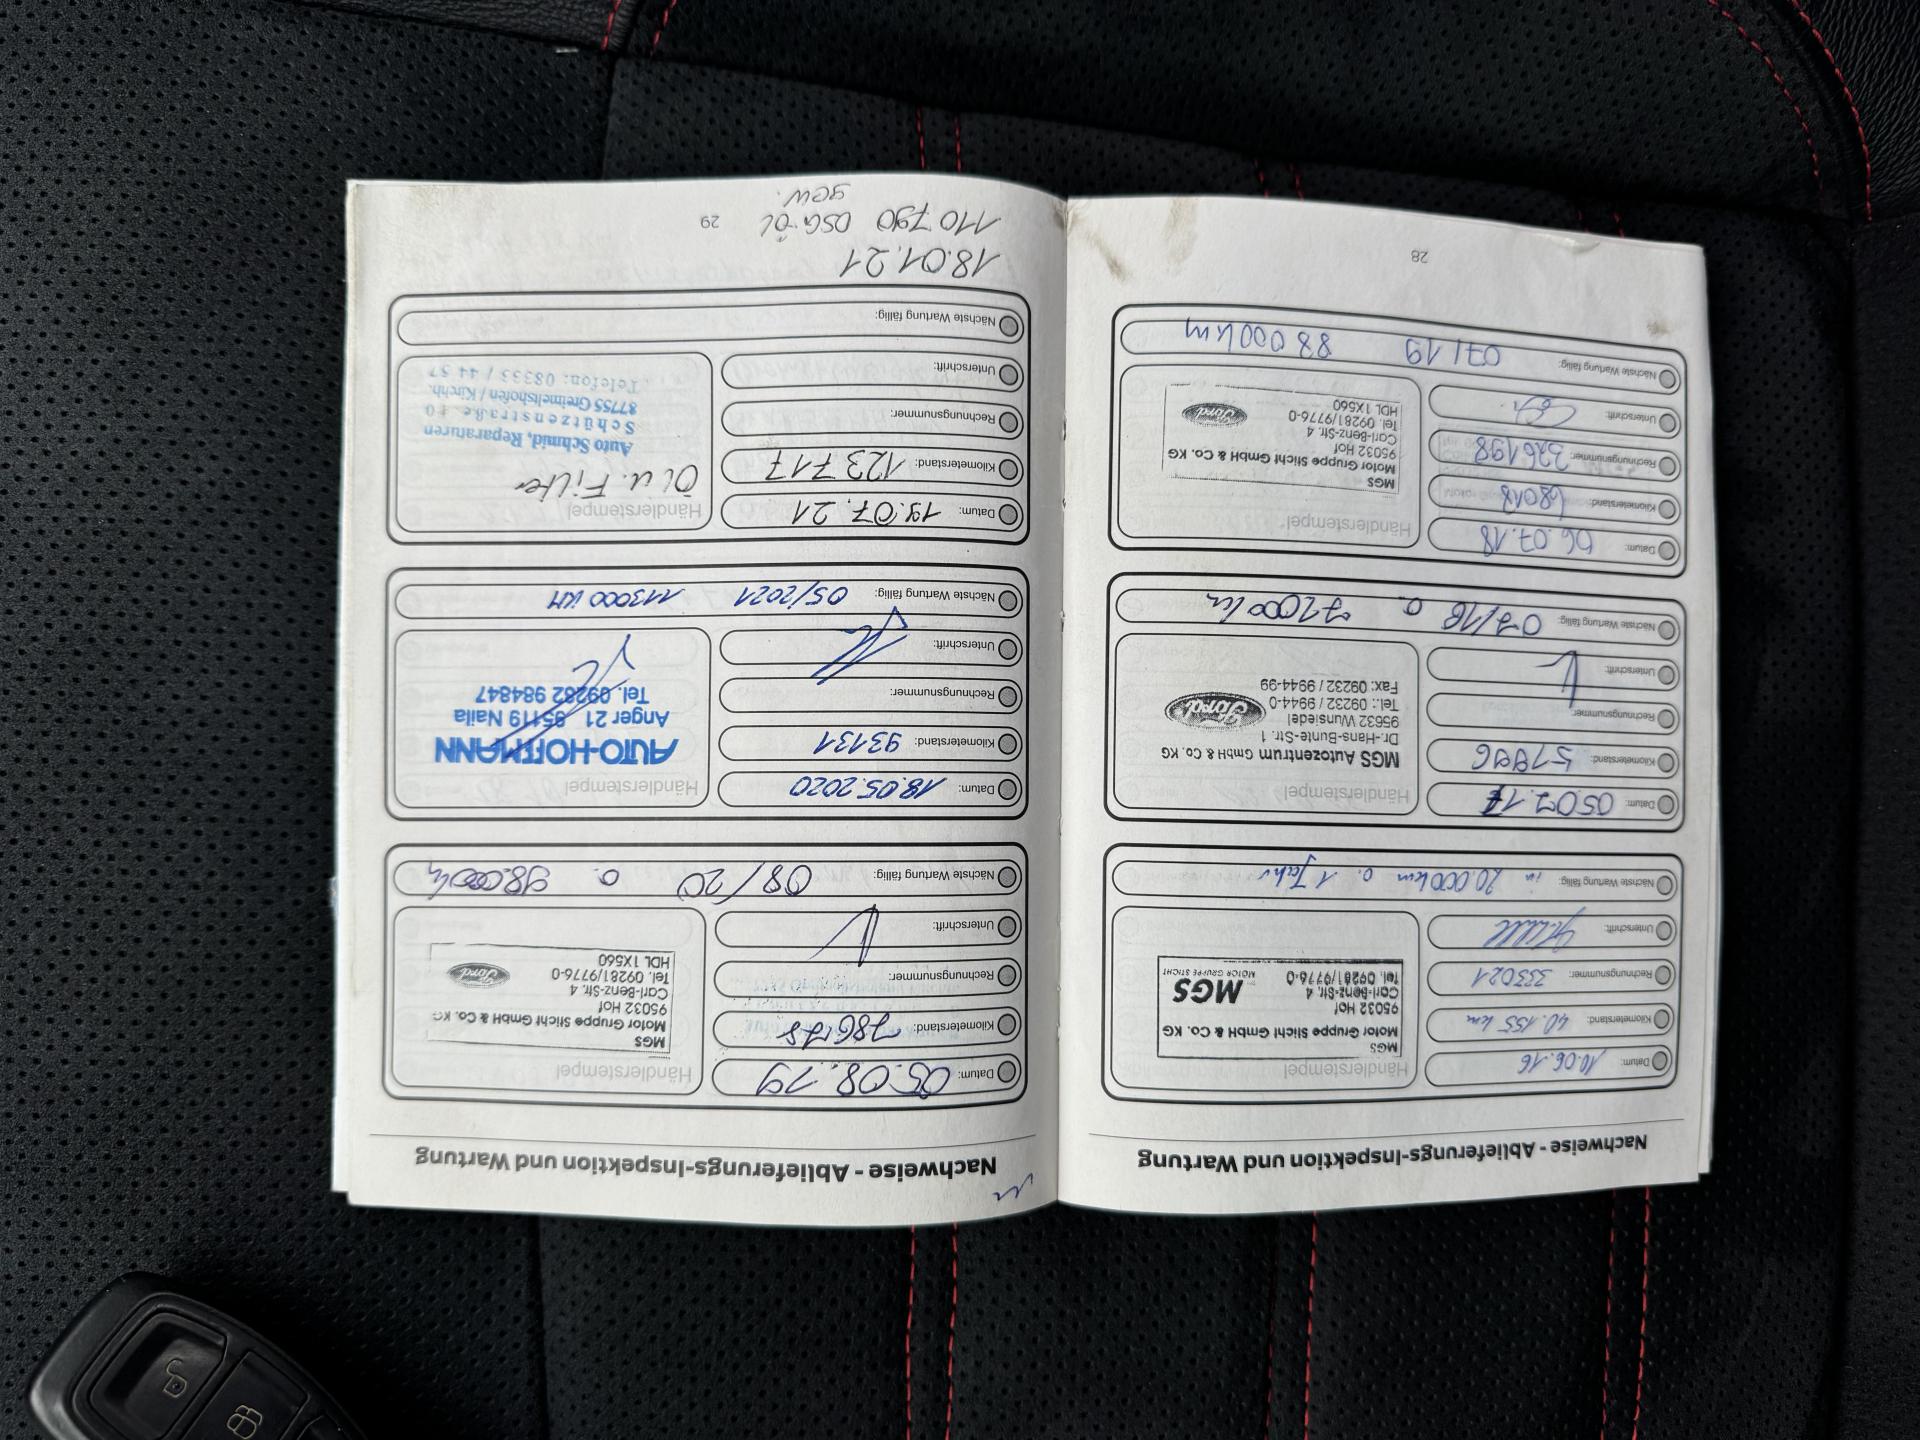 Nachweise - Ablieferungs-Inspektion und Wartung
Datum: 10.06.16
Kilometerstand: 40.155 km
Rechnungsnummer: 333021
Unterschrift:
Nächste Wartung fällig: in 20.000km o. 1 Jahr
Händlerstempel
MGS
Motor Gruppe Sticht GmbH & Co. KG
95032 Hof
Carl-Benz-Str. 4
Tel. 09281/9776-0
MGS
MOTOR GRUPPE STICHT
Datum: 05.07.17
Kilometerstand: 57896
Rechnungsnummer:
Unterschrift:
Nächste Wartung fällig: 07/18 o.
Händlerstempel
MGS Autozentrum GmbH & Co. KG
Dr.-Hans-Bunte-Str. 1
95632 Wunsiedel
Tel.: 09232 / 9944-0
Fax: 09232 / 9944-99
Ford
Datum: 06.07.18
Kilometerstand: 68018
Rechnungsnummer: 336198
Unterschrift:
Nächste Wartung fällig: 07/19 88000km
Händlerstempel
MGS
Motor Gruppe Sticht GmbH & Co. KG
95032 Hof
Carl-Benz-Str. 4
Tel. 09281/9776-0
HDL 1X560
Ford
28
Nachweise - Ablieferungs-Inspektion und Wartung
Datum: 05.08.19
Kilometerstand: 78678
Rechnungsnummer:
Unterschrift:
Nächste Wartung fällig: 08/20 o. 98.000km
Händlerstempel
MGS
Motor Gruppe Sticht GmbH & Co. KG
95032 Hof
Carl-Benz-Str. 4
Tel. 09281/9776-0
HDL 1X560
Ford
Datum: 18.05.2020
Kilometerstand: 93131
Rechnungsnummer:
Unterschrift:
Nächste Wartung fällig: 05/2021 113000 KM
Händlerstempel
AUTO-HOFFMANN
Anger 21 95119 Naila
Tel. 09282 984847
Datum: 19.07.21
Kilometerstand: 123717
Rechnungsnummer:
Unterschrift:
Nächste Wartung fällig:
Händlerstempel
Öl u. Filter
Auto Schmid, Reparaturen
Schützenstraße 10
87755 Greimeltshofen / Kirchh.
Telefon: 08333 / 44 57
18.01.21
110790 DSG-Öl
gew.
29